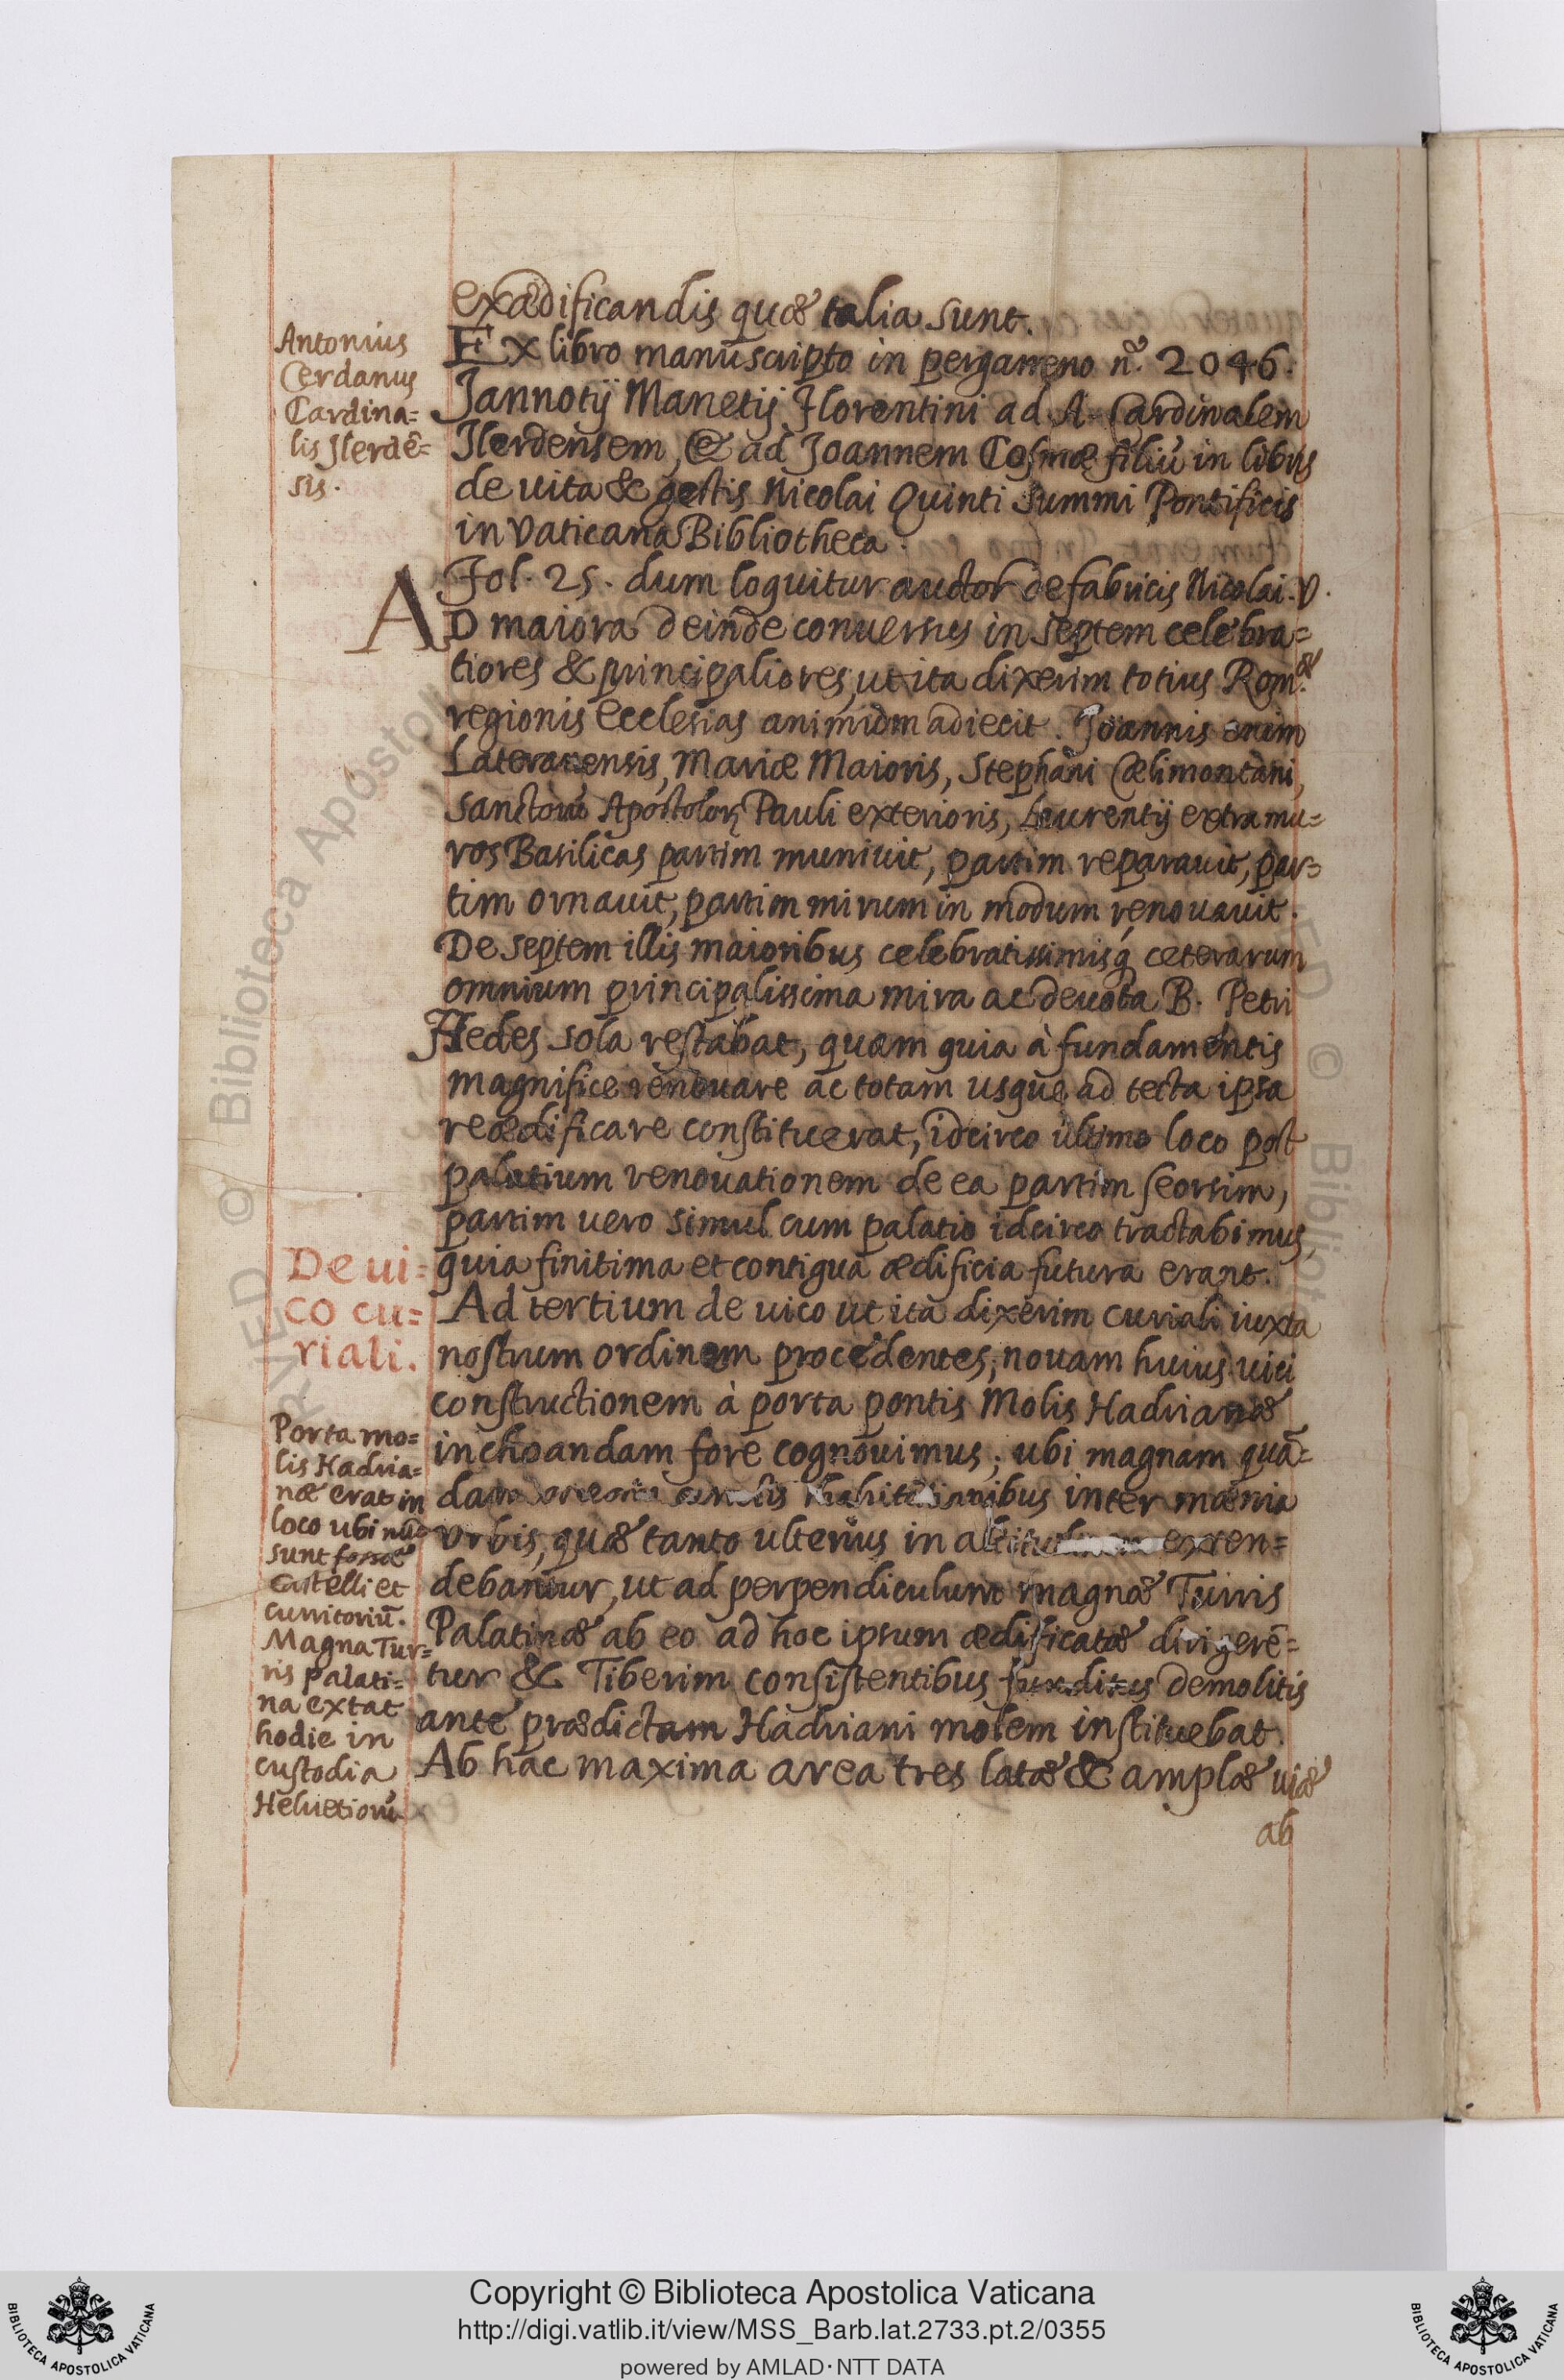 exædificandis quæ talia sunt.
Antonius
Cerdanus
Cardina=
lis Ilerdẽ=
sis.
Ex libro manuscripto in pergameno nº. 2046.
Jannotij Manetij Florentini ad A. Cardinalem
Ilerdensem, & ad Joannem Cosmæ filiũ in libris
de uita & gestis Nicolai Quinti Summi Pontificis
in Vaticana Bibliotheca.
Fol. 25. dum loquitur auctor de fabricis Nicolai. V.
AD maiora deinde conuersus in septem celebra=
tiores & principaliores, ut ita dixerim totius Romæ
regionis Ecclesias animum adiecit. Joannis enim
Lateranensis, Mariæ Maioris, Stephani Cælimontani,
Sanctorũ Apostolorꝝ Pauli exterioris, Laurentij extra mu=
ros Basilicas partim muniuit, partim reparauit, par=
tim ornauit, partim mirum in modum renouauit.
De septem illis maioribus celebratissimisq́ ceterarum
omnium principalissima mira ac deuota B. Petri
Aedes sola restabat, quam quia à fundamentis
magnifice renouare ac totam usque ad tecta ipsa
reædificare constituerat, idcirco ultimo loco post
palatium renouationem de ea partim seorsim,
partim uero simul cum palatio idcirco tractabimus,
quia finitima et contigua ædificia futura erant.
De ui=
co cu=
riali.
Ad tertium de uico ut ita dixerim curiali iuxta
nostrum ordinem procedentes, nouam huius uici
constructionem à porta pontis Molis Hadrianæ
inchoandam fore cognouimus; ubi magnam quã=
dam inter mænia
Vrbis, quæ tanto ulterius in exten=
debantur, ut ad perpendiculum magnæ Turris
Palatinæ ab eo ad hoc ipsum ædificatæ dirigerẽ=
tur & Tiberim consistentibus funditus demolitis
ante prædictam Hadriani molem instituebat.
Ab hac maxima area tres latæ & amplæ uiæ
ab
Porta mo=
lis Hadria=
næ erat in
loco ubi nũc
sunt fossæ
Castelli et
curritoriũ.
Magna Tur=
ris palati=
na extat
hodie in
custodia
Heluetiorũ
Copyright © Biblioteca Apostolica Vaticana
http://digi.vatlib.it/view/MSS_Barb.lat.2733.pt.2/0355
powered by AMLAD·NTT DATA
BIBLIOTECA APOSTOLICA VATICANA
BIBLIOTECA APOSTOLICA VATICANA